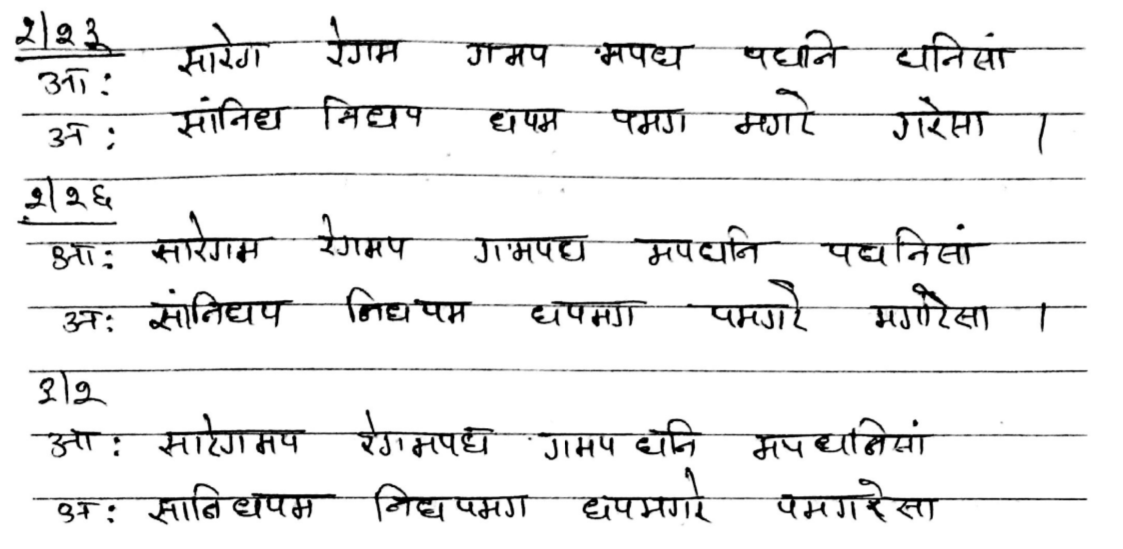 २|२३
आ: सारेग रेगम गमप मपध पधनि धनिसां
अ: सांनिध निधप धपम पमग मगरे गरेसा ।
२|२६
आ: सारेगम रेगमप गमपध मपधनि पधनिसां
अ: सांनिधप निधपम धपमग पमगरे मगरेसा ।
३|२
आ: सारेगमप रेगमपध गमपधनि मपधनिसां
अ: सानिधपम निधपमग धपमगरे पमगरेसा